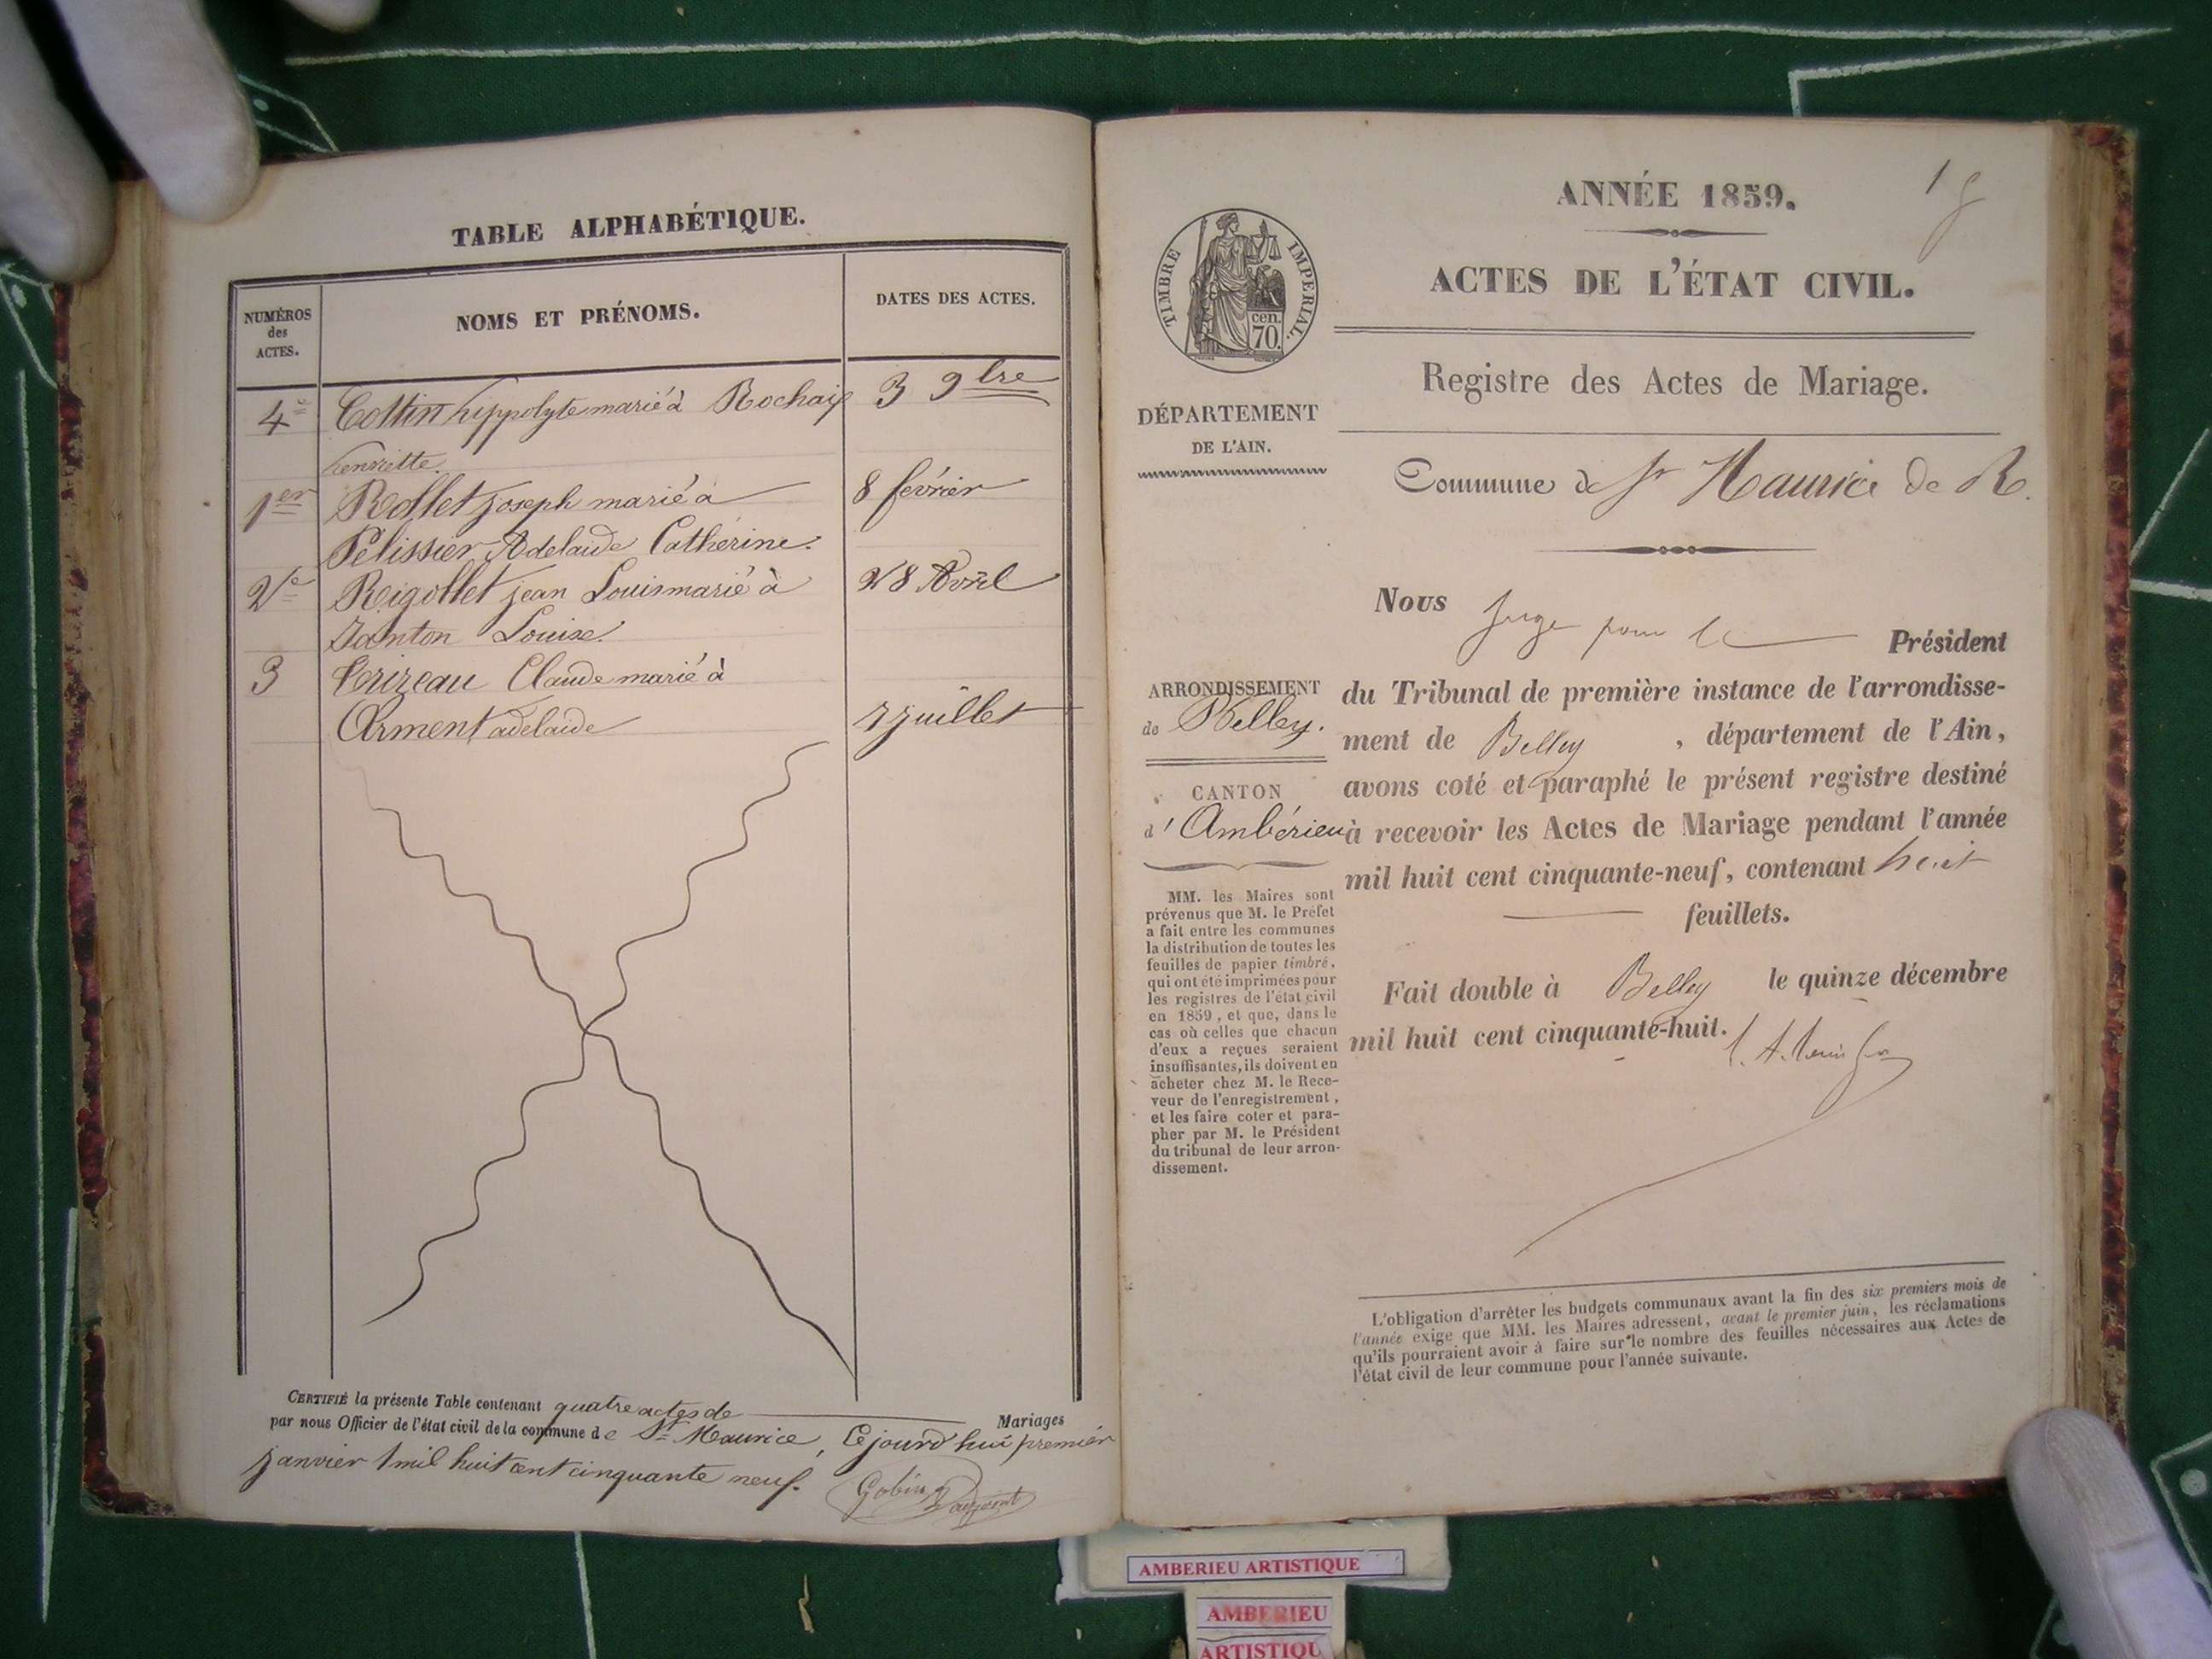 TABLE ALPHABÉTIQUE.
NUMÉROS
des
ACTES.
NOMS ET PRÉNOMS.
DATES DES ACTES.
4e Cottin hippolyte marié à Rochaix 3 9bre
henriette.
1er Rollet joseph marié à 8 février
Pélissier Adelaide Catherine.
2e Rigollet jean Louis marié à 28 Avril
Janton Louise.
3 Claude marié à
Arment adelaide 7 juillet
CERTIFIÉ la présente Table contenant quatre actes de Mariages
par nous Officier de l'état civil de la commune de St Maurice, Cejourd'hui premier
janvier 1mil huit cent cinquante neuf.
Gobin
ANNÉE 1859.
1
ACTES DE L'ÉTAT CIVIL.
TIMBRE IMPERIAL.
cen.
70.
Registre des Actes de Mariage.
DÉPARTEMENT
DE L'AIN.
Commune de St Maurice de R.
Nous Juge pour le Président
du Tribunal de première instance de l'arrondisse-
ment de Belley, département de l'Ain,
avons coté et paraphé le présent registre destiné
à recevoir les Actes de Mariage pendant l'année
mil huit cent cinquante-neuf, contenant huit
feuillets.
Fait double à Belley le quinze décembre
mil huit cent cinquante-huit.
ARRONDISSEMENT
de Belley.
CANTON
d'Ambérieu
MM. les Maires sont
prévenus que M. le Préfet
a fait entre les communes
la distribution de toutes les
feuilles de papier timbré,
qui ont été imprimées pour
les registres de l'état civil
en 1859, et que, dans le
cas où celles que chacun
d'eux a reçues seraient
insuffisantes, ils doivent en
acheter chez M. le Rece-
veur de l'enregistrement,
et les faire coter et para-
pher par M. le Président
du tribunal de leur arron-
dissement.
L'obligation d'arrêter les budgets communaux avant la fin des six premiers mois de
l'année exige que MM. les Maires adressent, avant le premier juin, les réclamations
qu'ils pourraient avoir à faire sur le nombre des feuilles nécessaires aux Actes de
l'état civil de leur commune pour l'année suivante.
AMBERIEU ARTISTIQUE
AMBERIEU
ARTISTIQU